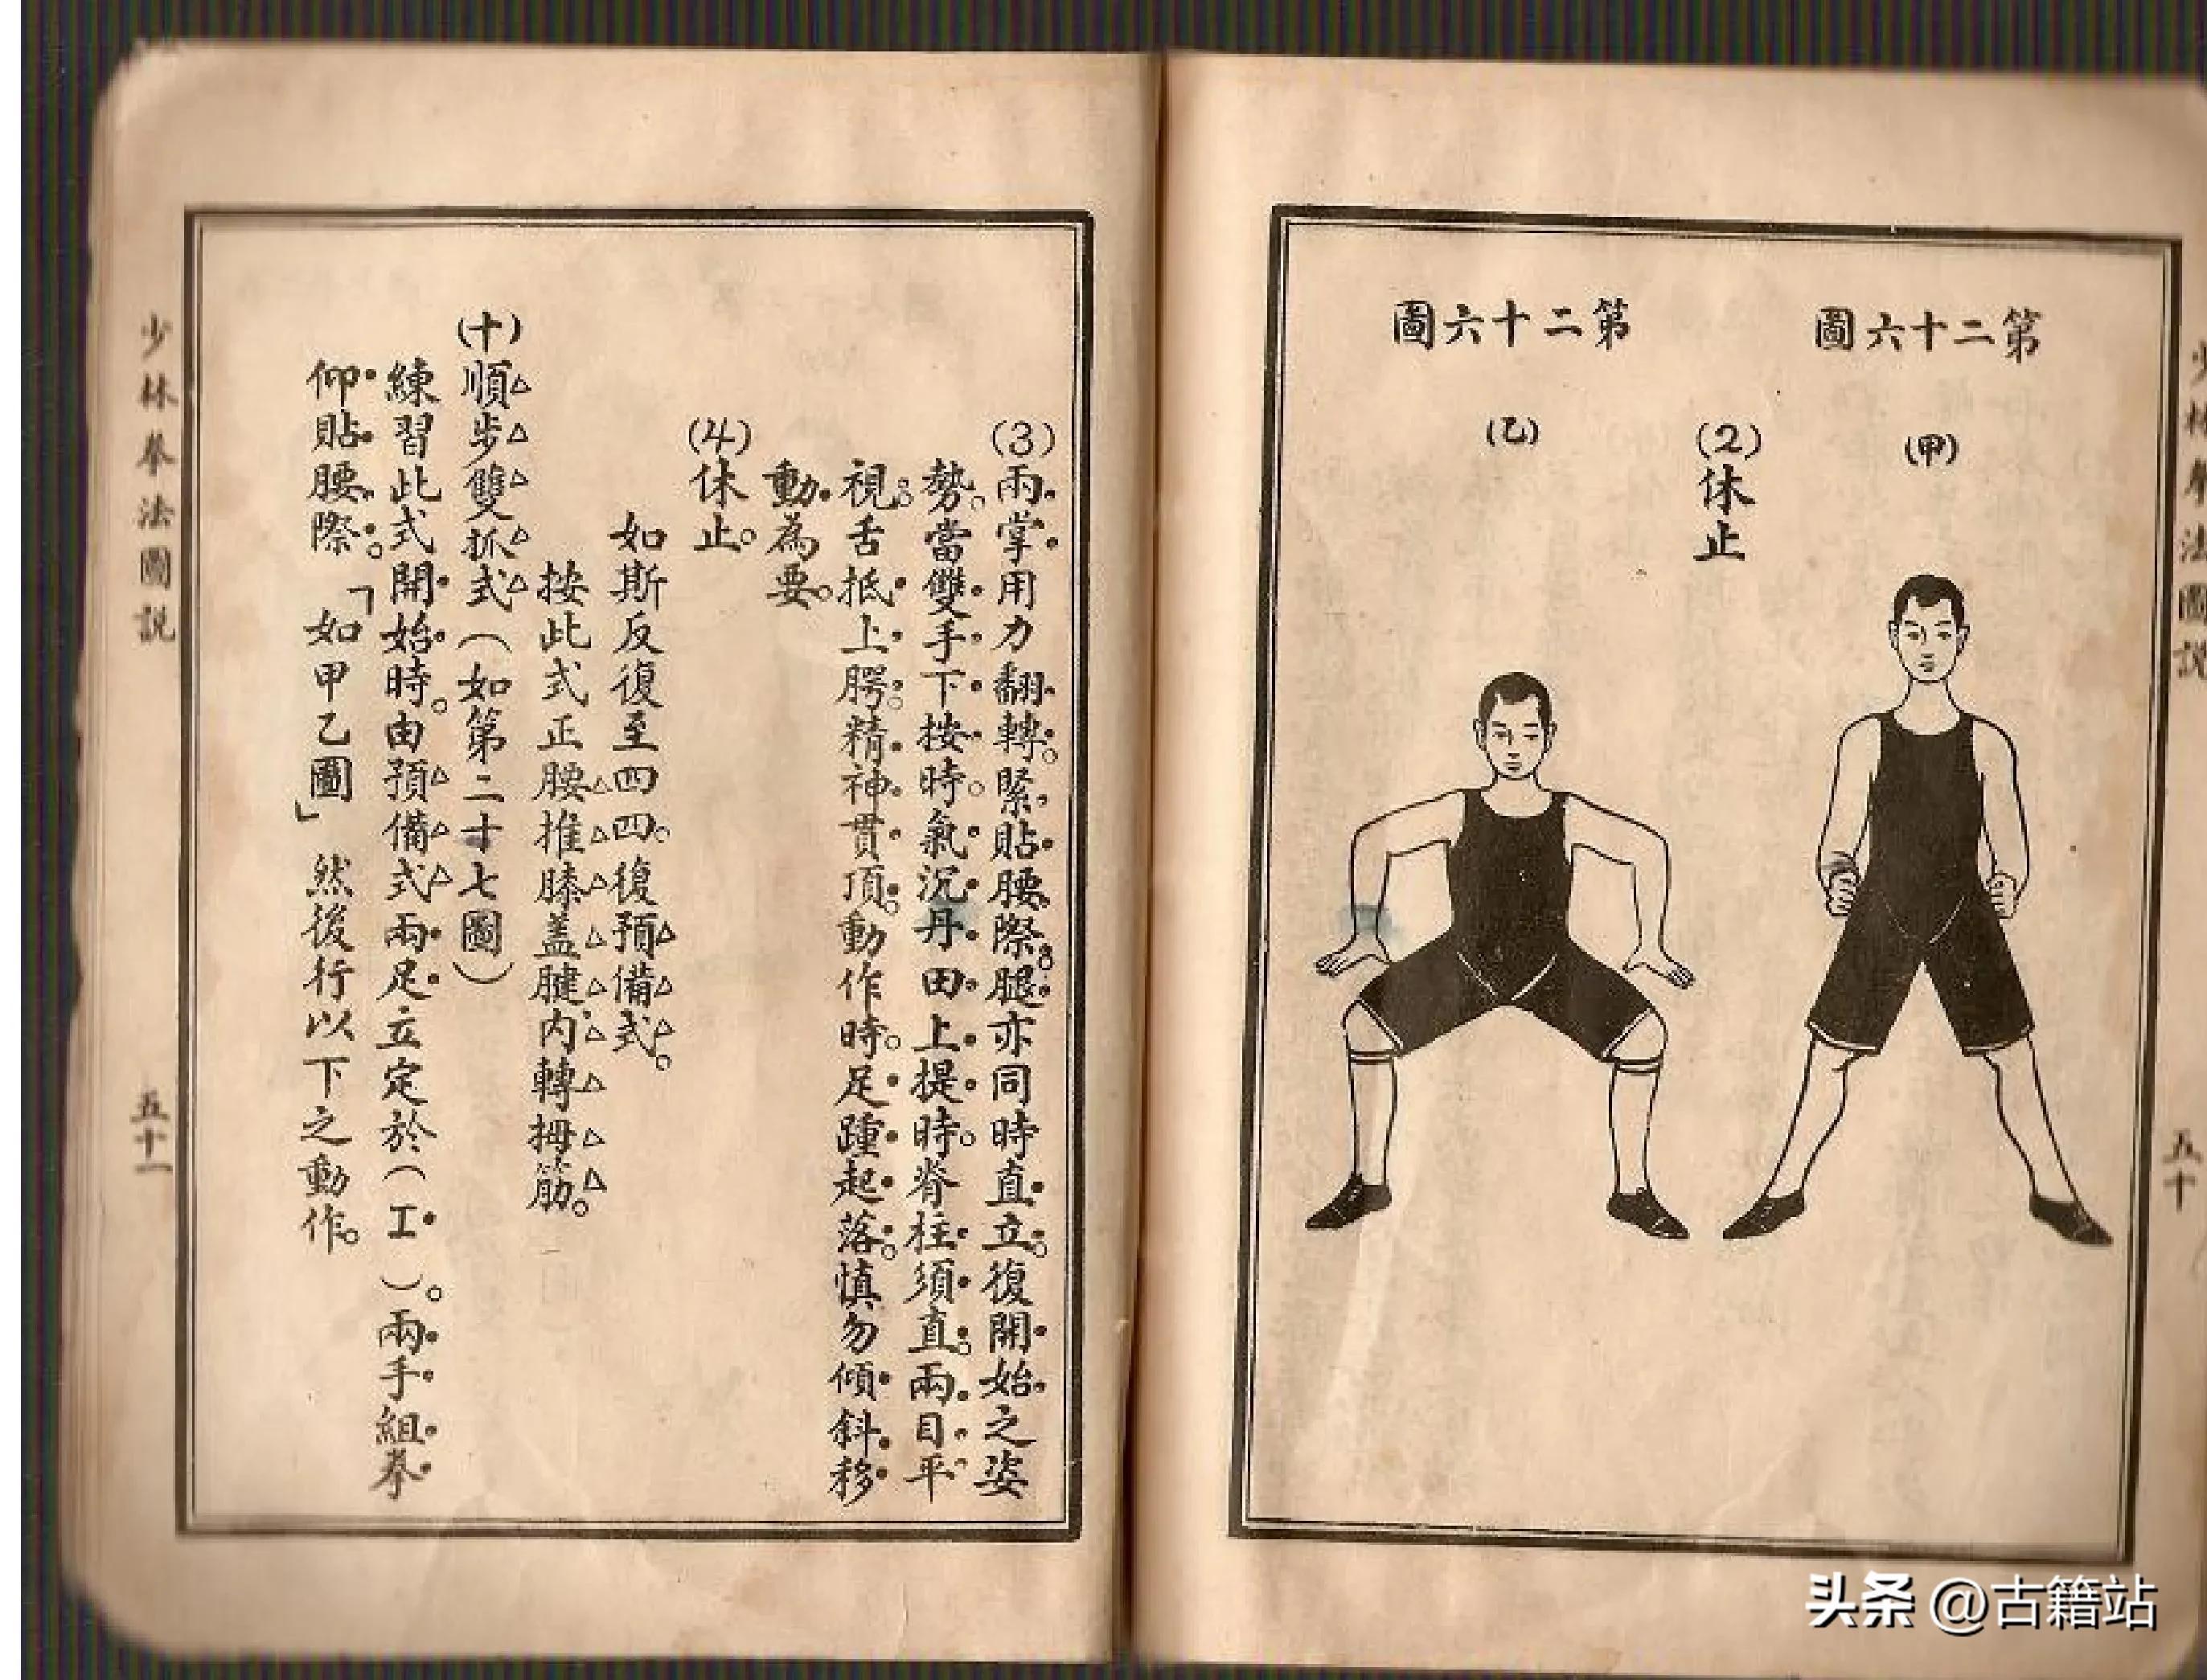 少林拳法圖説
五十
第二十六圖
(甲)
(2)休止
第二十六圖
(乙)
(3)兩掌用力翻轉。緊貼腰際。腿亦同時直立。復開始之姿
勢。當雙手下按時。氣沉丹田上提時。脊柱須直。兩目平
視。舌抵上腭。精神貫頂。動作時。足踵起落。慎勿傾斜移
動為要。
(4)休止。
如斯反復至四四。復預備式。
按此式正腰推膝蓋腱内轉拇筋。
(十)順步雙抓式(如第二十七圖)
練習此式開始時。由預備式兩足立定於(工)。兩手組拳
仰貼腰際。「如甲乙圖」然後行以下之動作。
少林拳法圖説
五十一
头条 @古籍站